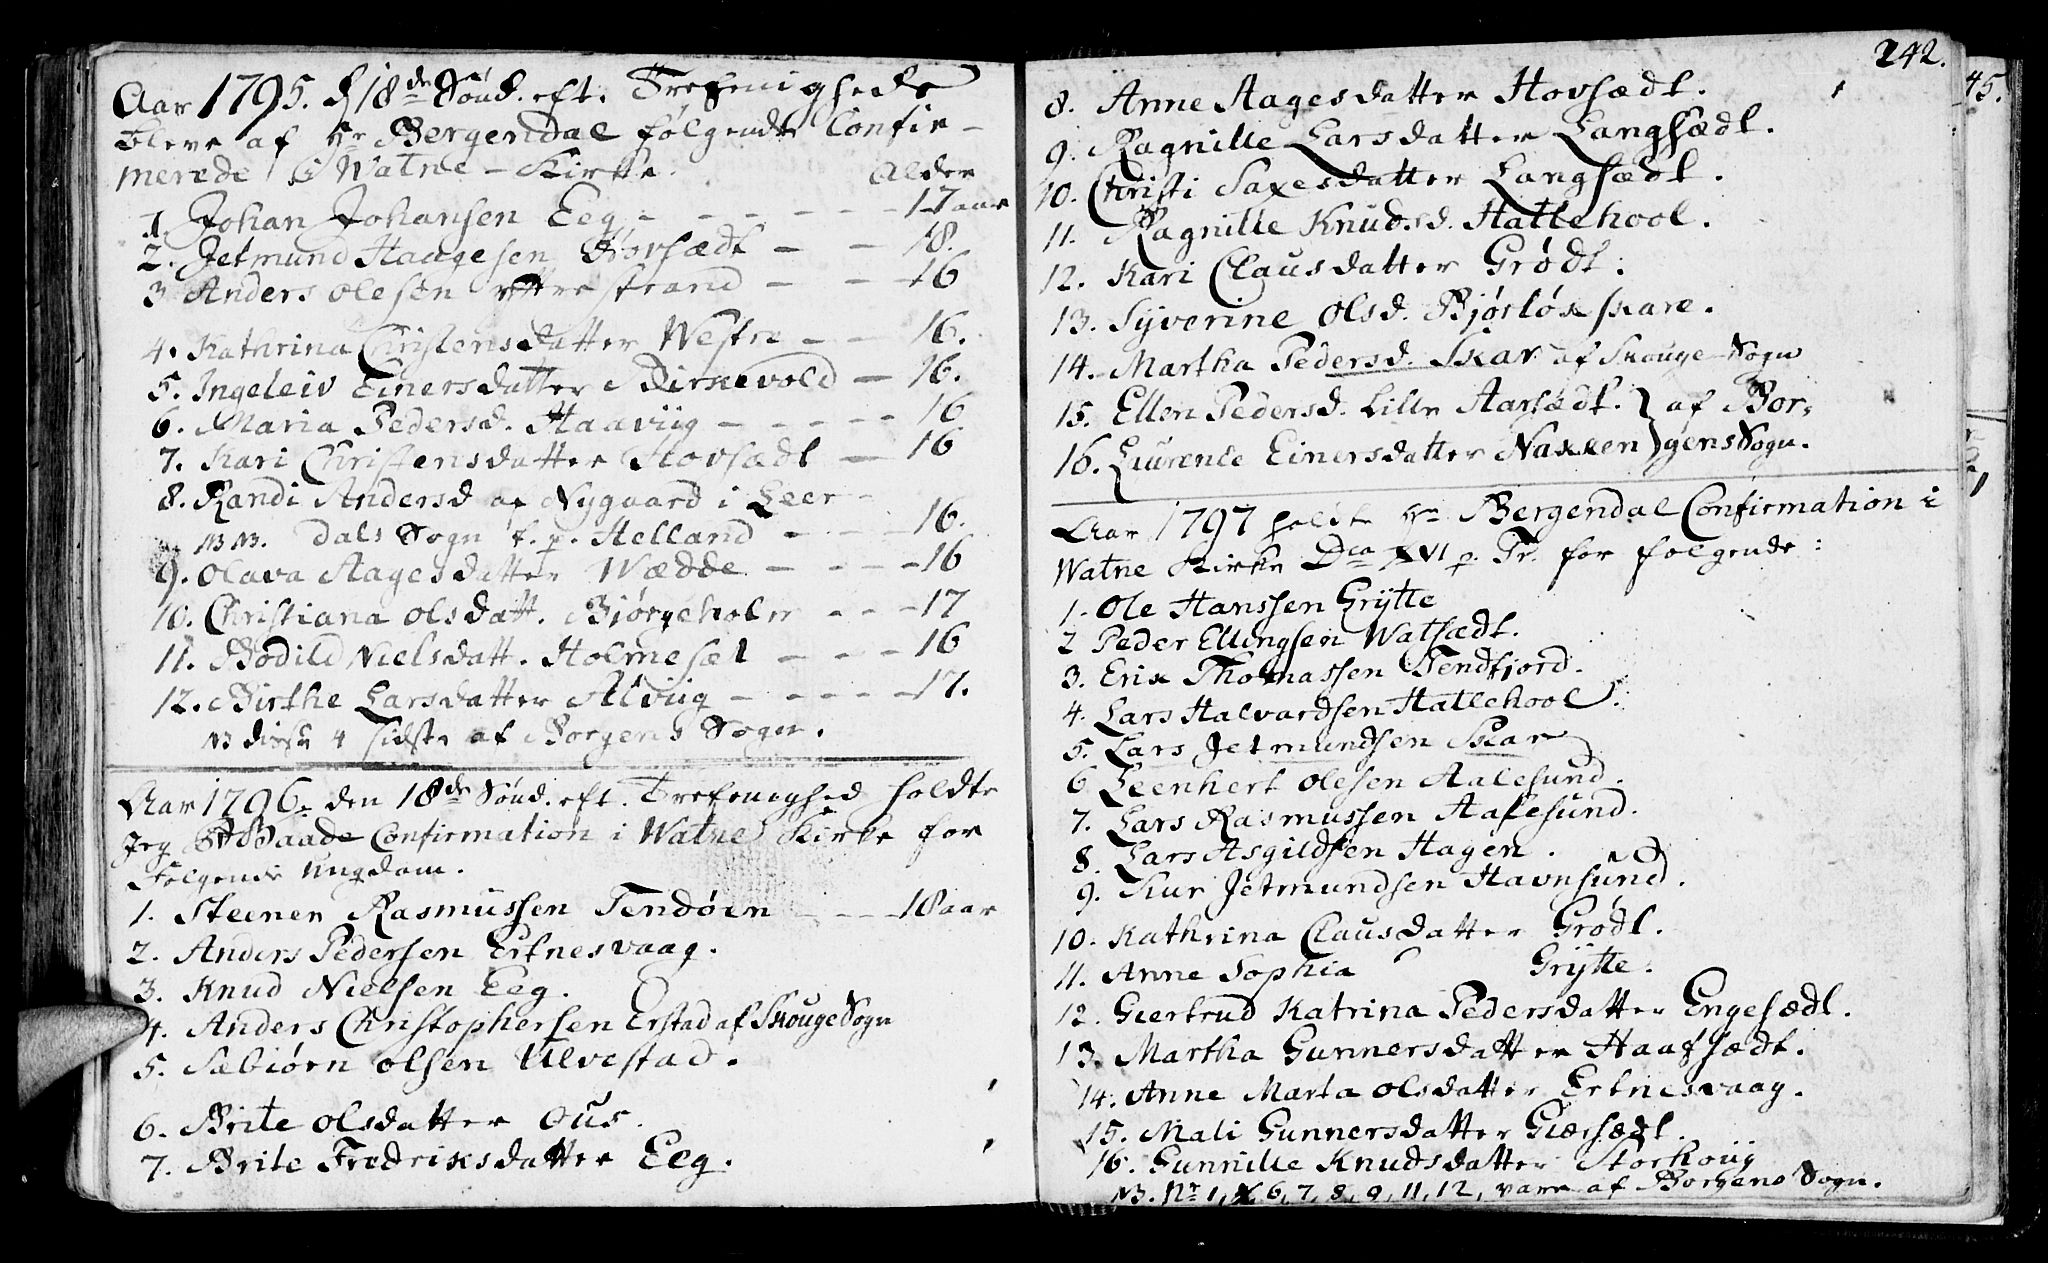 Aar 1795. d 18de Sönd. eft. Trefenighede
bleve af Hr Bergendal følgende Confir-
merede i Watne-Kirke. Alder
1. Johan Johansen Eeg - - - - - - 17 aar
2. Jetmund Haagesen Hovsædt - - 18.
3 Anders Olesen Yttrestrand - - 16
4. Kathrina Christensdatter Westre - - 16.
5. Ingeleiv Einersdatter Birkevold - 16.
6. Maria Pedersd. Haaviig - - - - - 16
7. Kari Christensdatter Hovsædt - 16
8. Randi Andersd af Nygaard i Leer-
NB NB. dals Sogn t. p. Helland - - - 16.
9. Olava Aagesdatter Wædde - - - - 16
10. Christiana Olsdatt. Bjørgeholm - - - 17
11. Bodild Nielsdatt. Holmeset - - - 16
12. Birthe Larsdatter Alviig - - - - - 17.
NB disse 4 sidste af Borgens Sogn.
Aar 1796. den 18de Sönd. eft. Trefenighed holdte
Jeg Baade Confirmation i Watne Kirke for
Følgende Ungdom.
1. Steener Rasmussen Tendöen - - - 18 aar
2. Anders Pedersen Ertnesvaag.
3. Knud Nielsen Eeg.
4. Anders Christophersen Erstad af Skouge Sogn
5. Sæbiörn Olsen Ulvestad.
6. Brite Olsdatter Ous.
7. Brite Fredriksdatter Eeg.
242.
8. Anne Aagesdatter Hovsædt.
9. Ragnille Larsdatter Langsædt.
10. Christi Saxesdatter Langsædt.
11. Ragnille Knudsd. Hatlehool.
12. Kari Clausdatter Grödt.
13. Syverine Olsd. Bjørløkskare.
14. Martha Pedersd. Skar af Skouge-Sogn
15. Ellen Pedersd. Lille Aarsædt. } af Bor-
16. Laurence Einersdatter Nakken } gens Sogn.
Aar 1797 holdte Hr Bergendal Confirmation i
Watne Kirke Dca XVI p. Tr. for følgende:
1. Ole Hanssen Grytte
2 Peder Ellingsen Watsædt.
3. Erik Thomassen Tendfjord.
4. Lars Halvardsen Hatlehool.
5. Lars Jetmundsen Skar
6 Leenhert Olesen Aalesund.
7. Lars Rasmussen Aalesund.
8. Lars Asgildsen Hagen.
9. Knr Jetmundsen Havnsund.
10. Kathrina Clausdatter Grödt.
11. Anne Sophia Grytte.
12. Giertrud Katrina Pedersdatter Engesædt.
13. Martha Gunnersdatter Haafsædt.
14. Anne Marta Olsdatter Ertnesvaag.
15. Mali Gunnersdatter Giærsædt.
16. Gunnille Knudsdatter Storhoug
NB. Nr 1, 6, 7, 8, 9, 11, 12, vare af Borgens Sogn.
45.